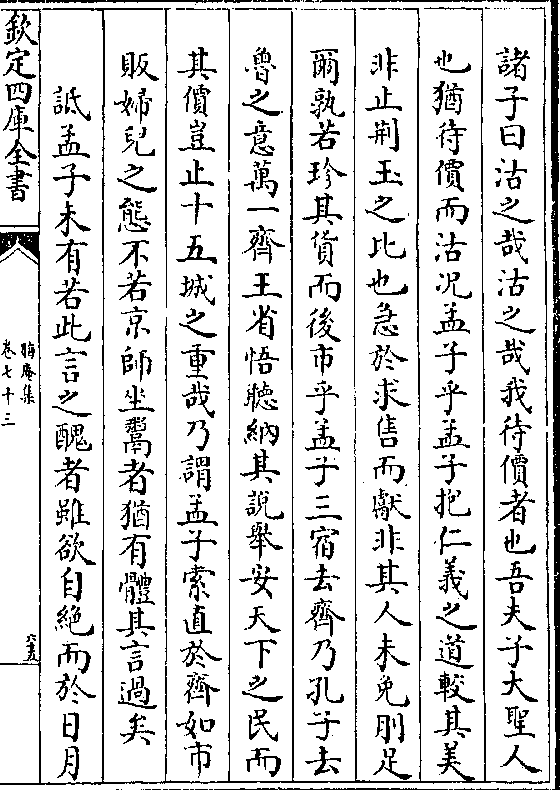 諸子曰沽之哉沽之哉我待價者也吾夫子大聖人
也猶待價而沽况孟子乎孟子把仁義之道較其美
非止荆玉之比也急於求售而獻非其人未免刖足
爾孰若珍其貨而後市乎孟子三宿去齊乃孔子去
魯之意萬一齊王省悟聽納其說舉安天下之民而
其價豈止十五城之重哉乃謂孟子索直於齊如市
販婦兒之態不若京師坐鬻者猶有體其言過矣
詆孟子未有若此言之醜者雖欲自絶而於日月
欽定四庫全書
晦庵集
卷七十三
六五